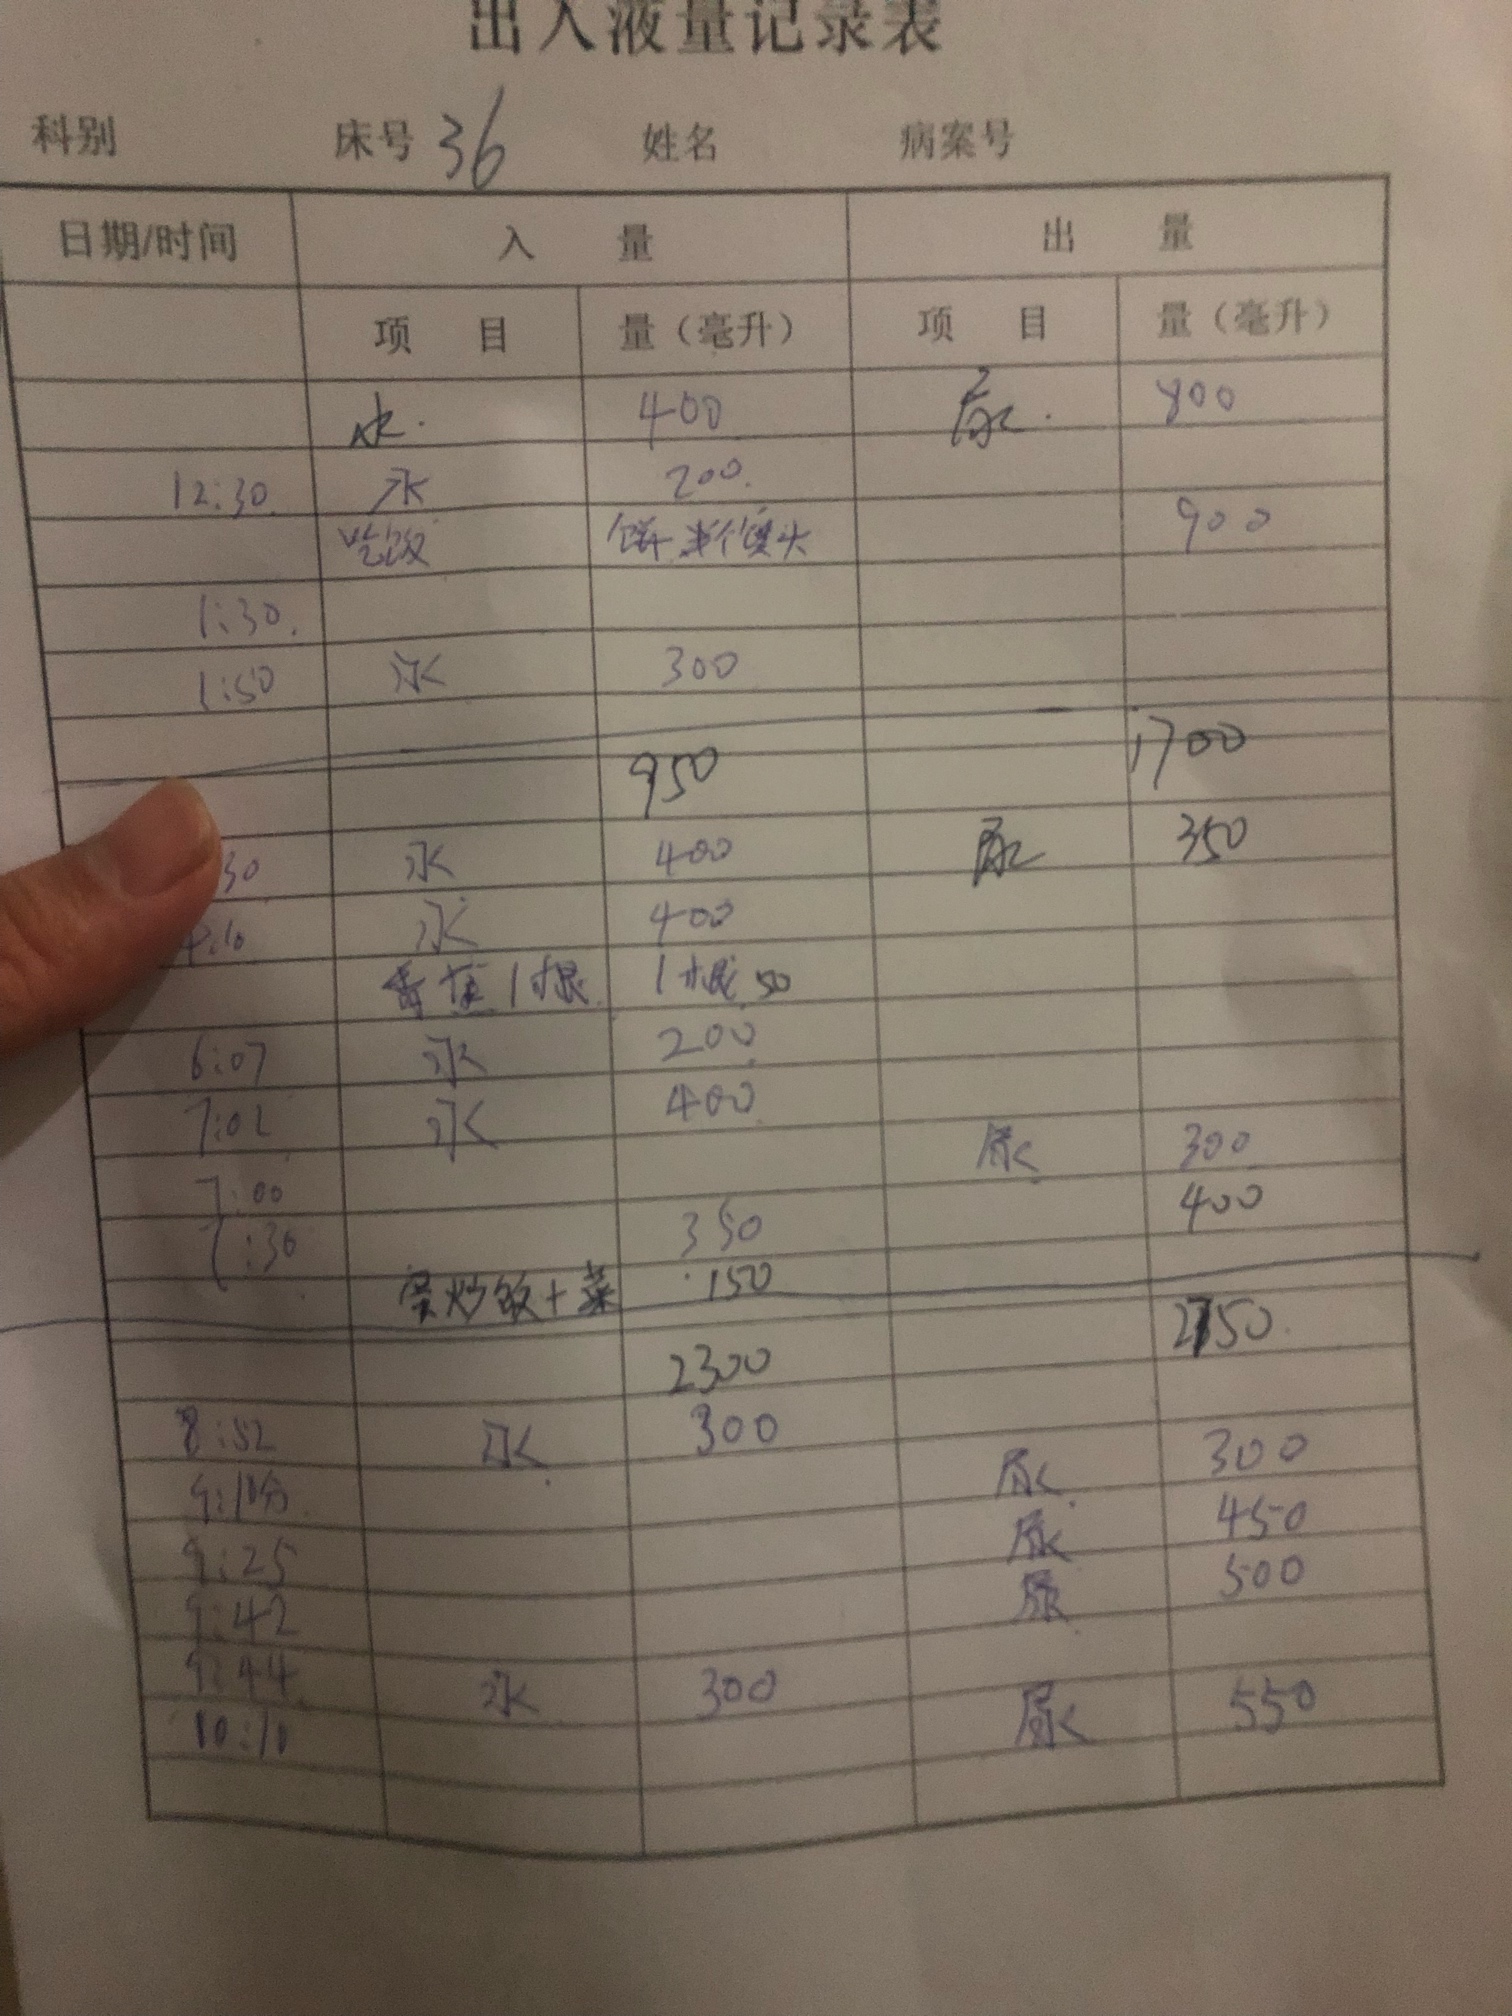 出入液量记录表
科别 床号 36 姓名 病案号
日期/时间 入 量 出 量
项 目 量（毫升） 项 目 量（毫升）
水. 400 尿. 800
12:30. 水 200.
吃饭 饼半个馒头 900
1:30.
1:50 水 300
950 1700
30 水 400 尿 350
4:10 水 400
香蕉1根 1根 50
6:07 水 200
7:02 水 400
7:00 尿 300
7:30 350 400
蛋炒饭+菜 150
2300 2750.
8:52 水 300
9:10分 尿 300
9:25 尿 450
9:42 尿 500
9:44 水 300
10:10 尿 550